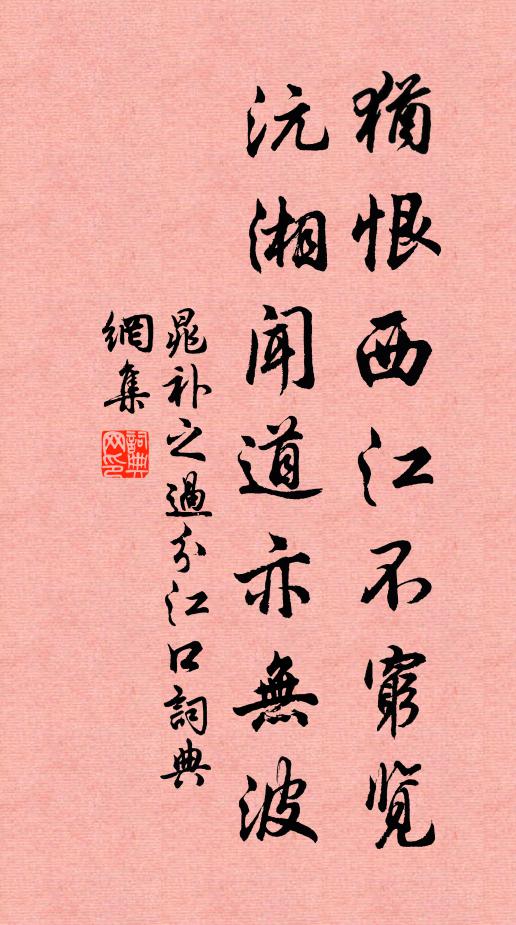 猶恨西江不窮覽
沅湘聞道亦無波
晁补之過分江口詞典
網集
詞典
网印